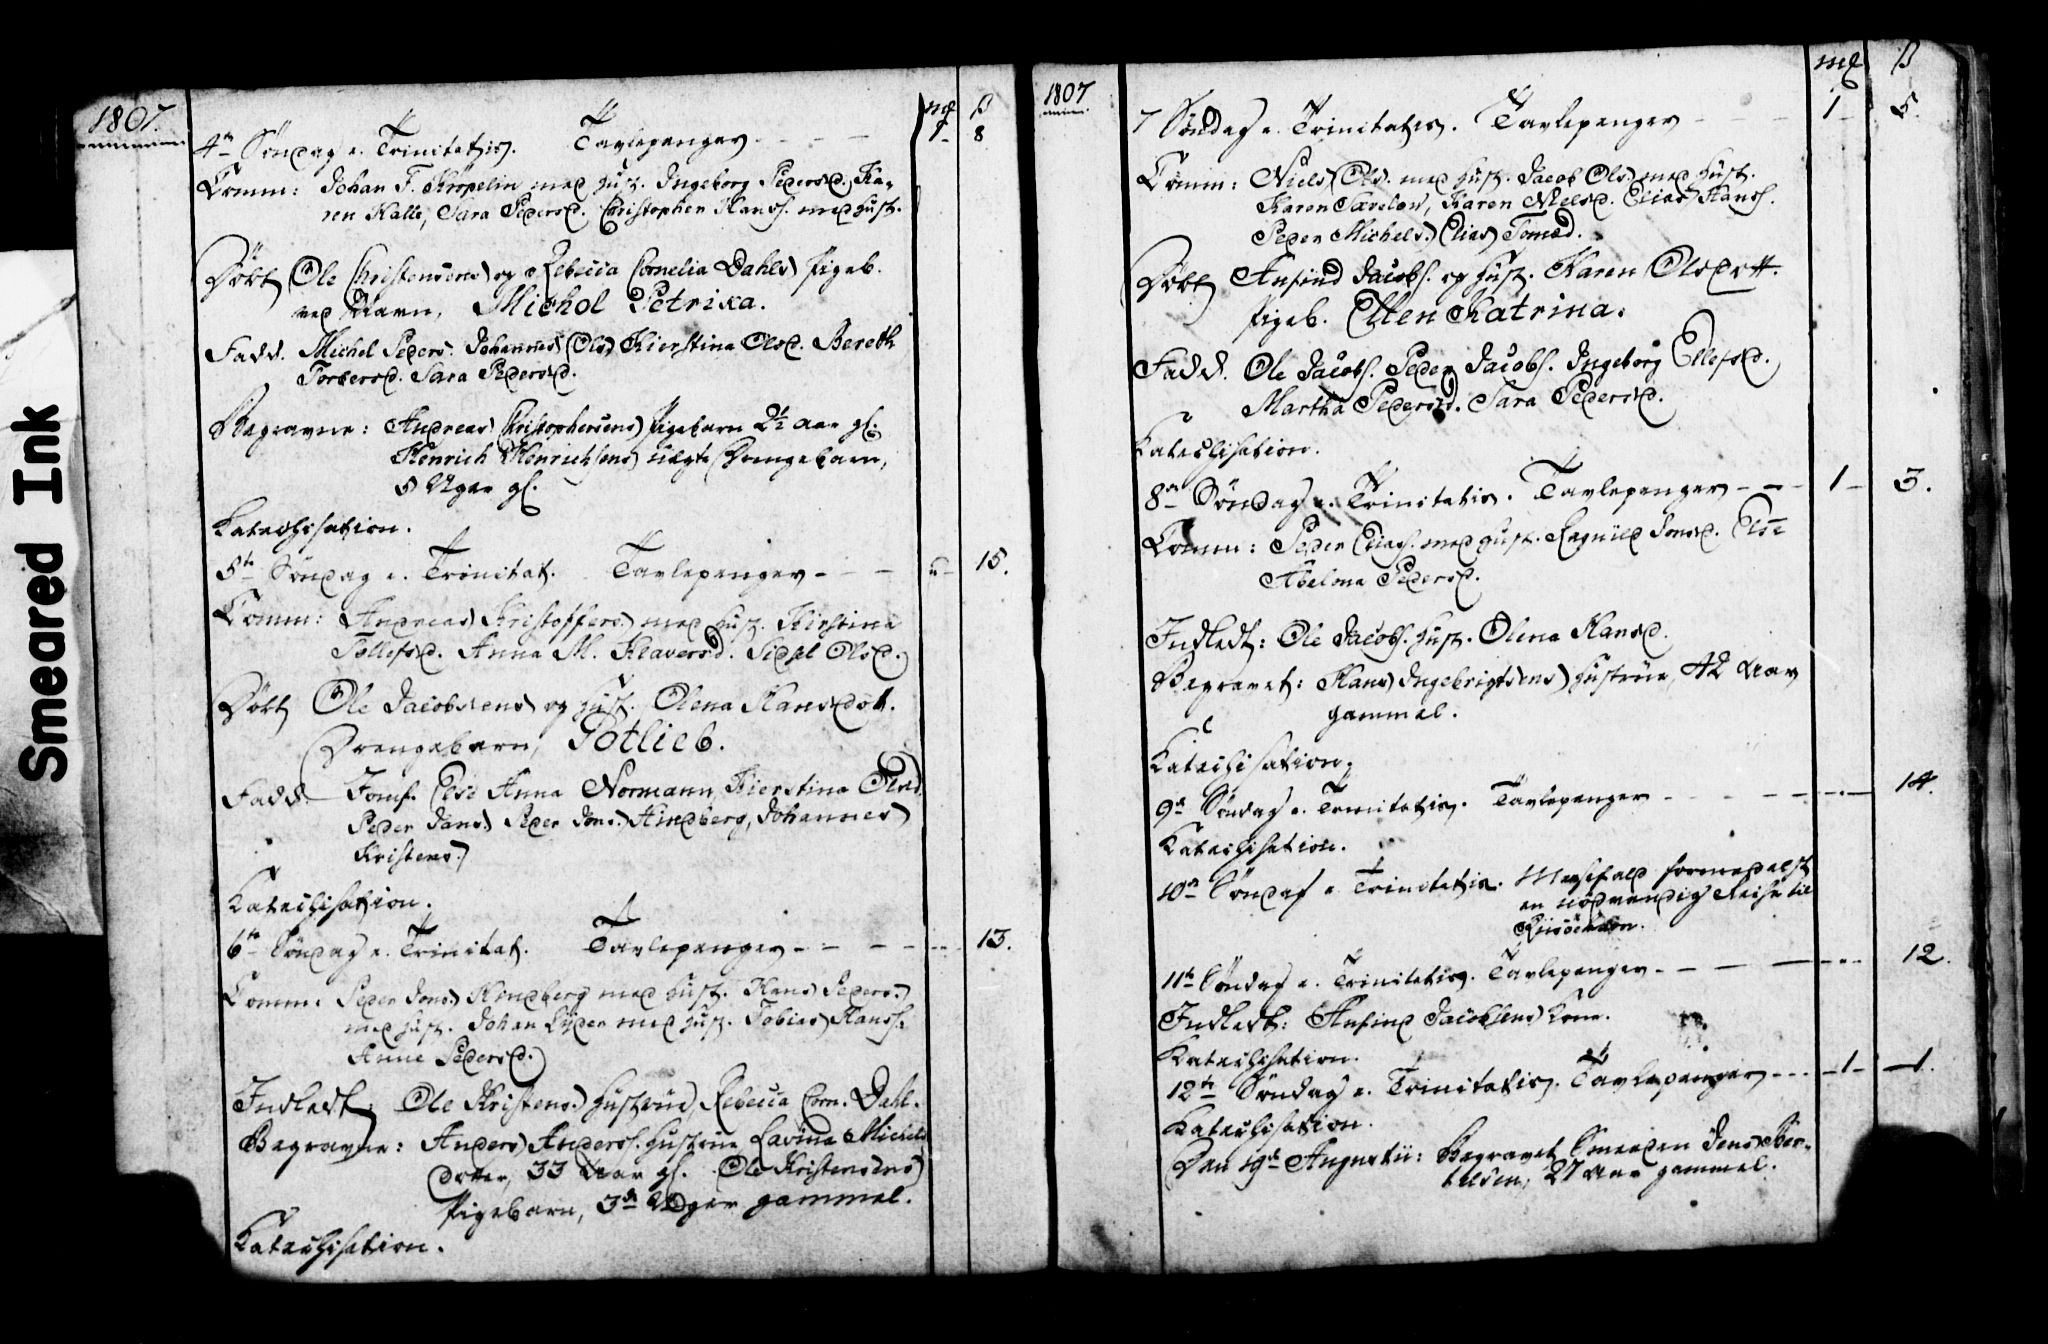 Smeared Ink
1807.
mꝃ ß
4de Søndag e. Trinitatis. Tavlepenger - - - 1 - 8
Comm: Johan F. Kröpelin med Hust. Ingeborg Pedersd. Ka-
ren Kalle, Sara Pedersd. Christopher Hanss. med Hust.
Døbt Ole Christensens og Rebecca Cornelia Dahls Pigeb.
ved Navn, Michol Petrixa.
Fadd. Michel Peders. Johannes Ols. Kierstina Olsd. Bereth
Torbersd. Sara Pedersd.
Begravne: Andreas Christophersens Pigebarn 2½ Aar gl.
Henrich Henrichsens uægte Drengebarn,
5 Uger gl.
Katechisation.
5te Søndag e. Trinitat. Tavlepenger - - - " - 15.
Comm: Andreas Kristoffers. med Hust. Kirstina
Tollefsd. Anna M. Klaversd. Sidsel Olsd.
Døbt Ole Jacobsens og Hust. Olena Hansdot.
Drengebarn, Potlieb.
Fadd. Jomf. Else Anna Normann, Kierstina Olsd.
Peder Jans. Peder Jons. Hindberg, Johannes
Kristens.
Katechisation.
6te Søndag e. Trinitat. Tavlepenger - - - - 13.
Comm: Peder Jons. Hindberg med Hust. Hans Peders.
med Hust. Johan Lyder med Hust. Tobias Hanss.
Anne Pedersd.
Indledt: Ole Kristens. Hustrue Rebecca Corn. Dahl.
Begravne: Anders Anderss. Hustrue Lavina Michels
dotter, 33 Aar gl. Ole Kristensens
Pigebarn, 3de Uger gammel.
Katechisation.
1807
mꝃ ß
7 Søndag e. Trinitatis. Tavlepenger - - - 1 - 5.
Comm: Niels Ols. med Hust. Jacob Ols. med Hust.
Karen Sævelow, Karen Nielsd. Elias Hanss.
Peder Michels. Elias Tomæd.
Døbt Anfind Jacobs. og Hust. Karen Olsdott.
Pigeb. Ellen Katrina.
Fadd. Ole Jacobs. Peder Jacobs. Ingeborg Ellefsd.
Martha Pedersd. Sara Pedersd.
Katechisation.
8de Søndag e. Trinitatis. Tavlepenger - - - 1 - 3.
Comm: Peder Elias. med Hust. Ragnild Jonsd. Else
Abelona Pedersd.
Indledt: Ole Jacobs. Hust. Olena Hansd.
Begravet: Hans Ingebrigtsens Hustrue, 42 Aar
gammel.
Katechisation.
9de Søndag e. Trinitatis. Tavlepenger - - - - 14.
Katechisation.
10de Søndag e. Trinitatis. Messefald formedelst
en nødvendig Reise til
11te Søndag e. Trinitatis. Tavlepenger - - - - 12.
Indledt: Anfind Jacobsens Kone.
Katechisation.
12te Søndag e. Trinitatis. Tavlepenger - - - 1 - 1.
Katechisation.
Den 19de Augustii: Begravet Smeden Jens Ber-
telsen, 27 Aar gammel.